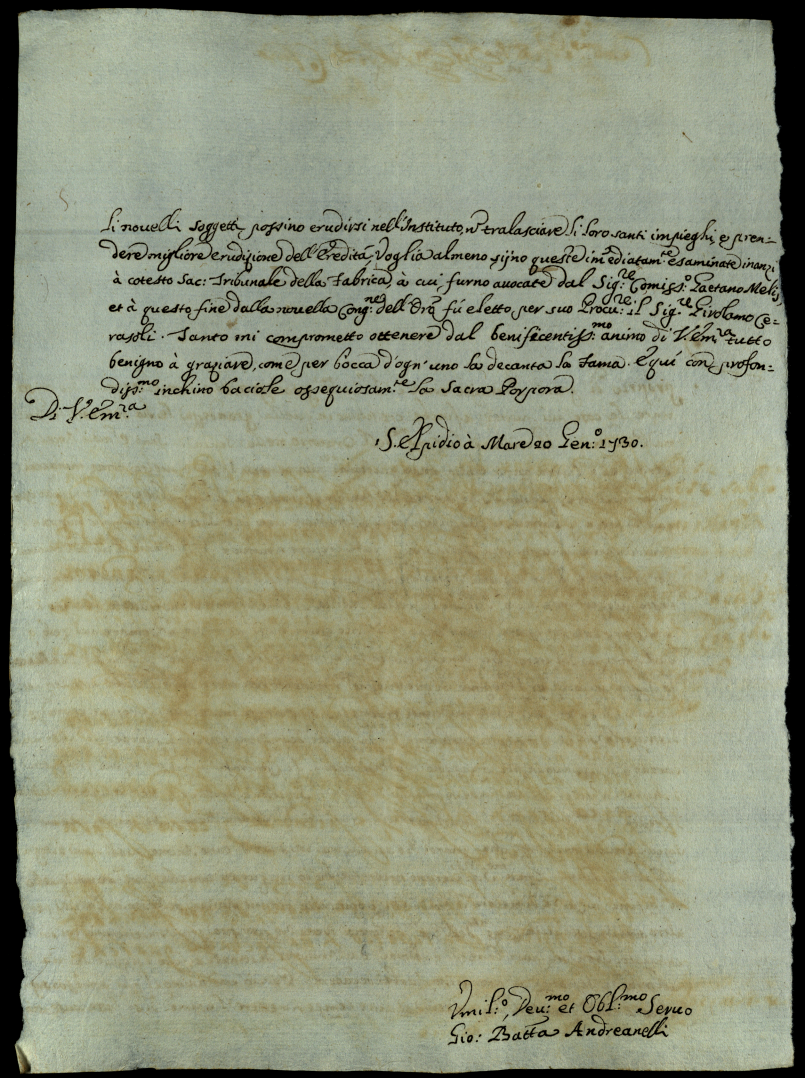 li nouelli soggetti possino erudirsi nell'Instituto, nè tralasciare li loro santi impieghi, e pren=
dere migliore erudizione dell'Eredità, Voglia almeno sijno queste imediatam:te esaminate inanzi
à cotesto Sac: Tribunale della Fabrica, à cui furno auocate dal Sig:re Comiss:o Gaetano Melis,
et à questo fine dalla nouella Cong:ne dell'Oro fù eletto per suo Procu:re il Sig:re Girolamo Ce=
rassli. Tanto mi comprometto ottenere dal beneficentiss:mo animo di V. Em:za tutto
benigno à graziare, come per bocca d'ogn'uno la decanta la Fama. E quì con profon=
diss:mo inchino baciole ossequiosam:te la Sacra Porpora.
Di V. Em:za
S. Elpidio à Mare 20 Gen:o 1730.
Vmil:o, Deu:mo et Obl:mo Seruo
Gio: Batta Andreanelli